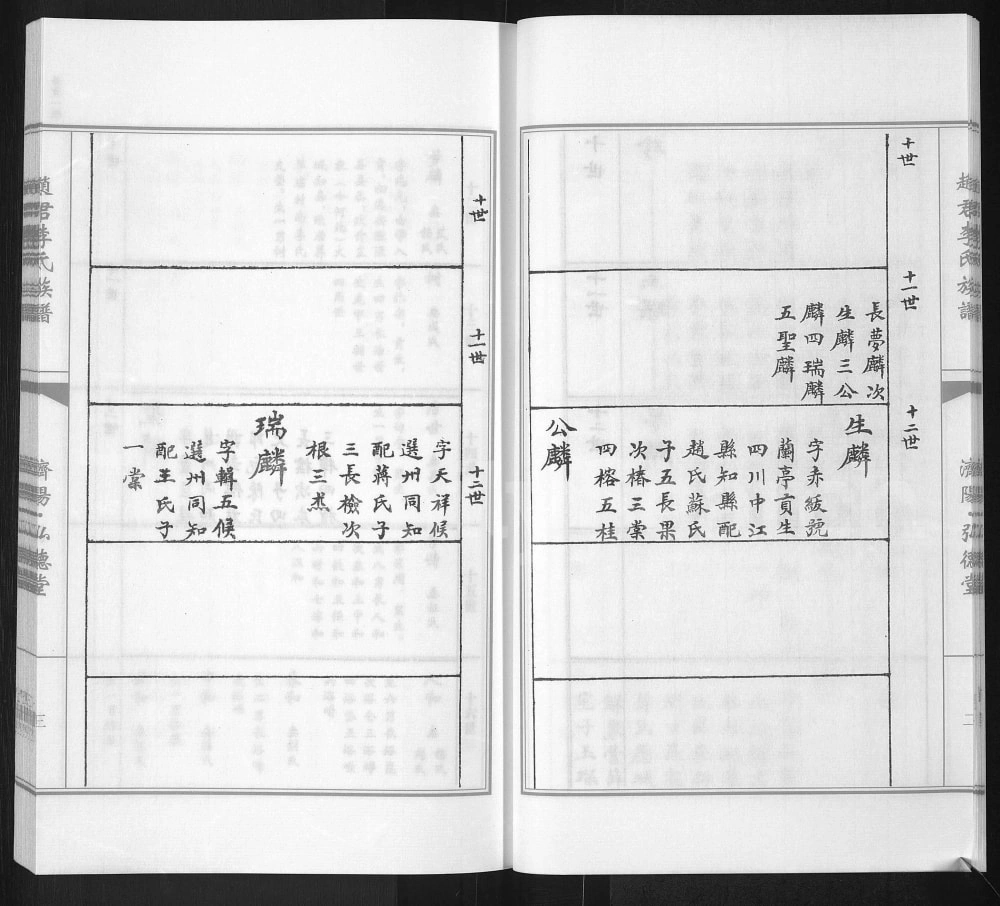 趙君李氏族譜
濟陽 弘德堂
二
十世
十一世
十二世
長夢麟次
生麟三公
麟四瑞麟
五聖麟
生麟
字赤紱號
蘭亭貢生
四川中江
縣知縣配
趙氏蘇氏
子五長果
次椿三棠
四榕五桂
公麟
十世
十一世
十二世
字天祥候
選州同知
配蔣氏子
三長檢次
根三杰
瑞麟
字輯五候
選州同知
配王氏子
一棠
君李氏族譜
濟陽 弘德堂
三